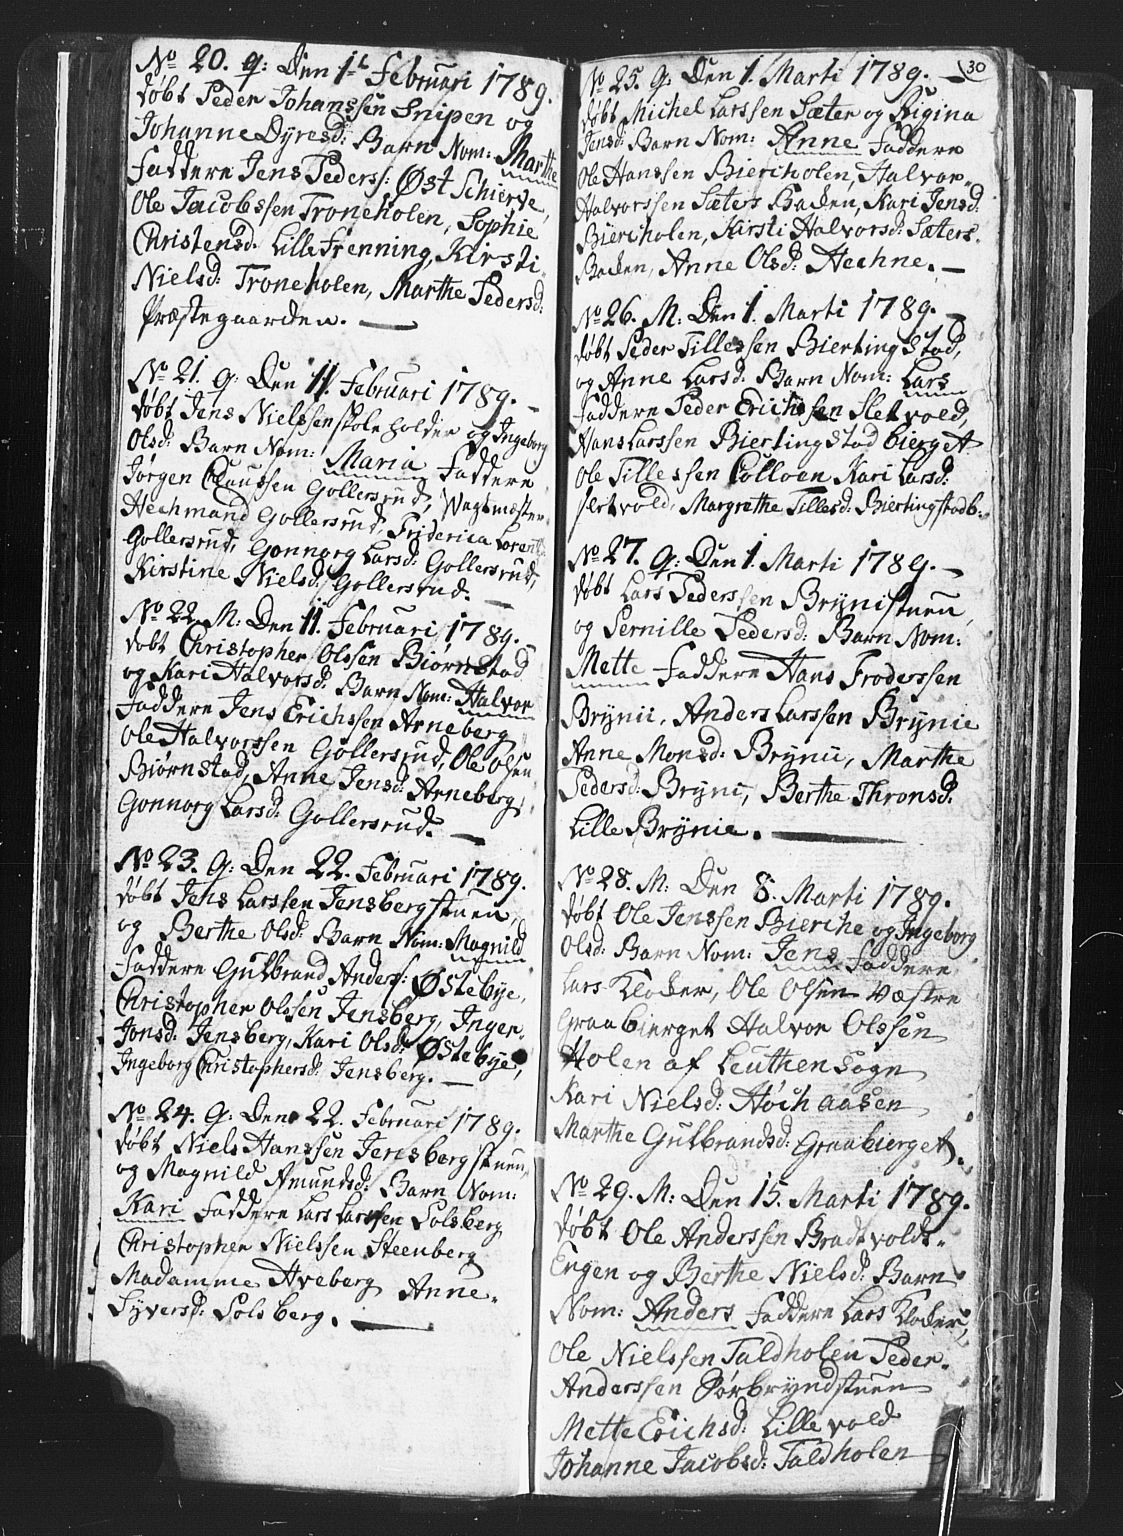 No 20. q: Den 1t Februari 1789.
døbt Peder Johanssen Snipen og
Johanne Dyresd: Barn Nom: Marthe
Faddere Jens Peders: Øst Schierve,
Ole Jacobssen Troneholen, Sophie
Christensd. Lille Frenning, Kirsti
Nielsd: Troneholen, Marthe Pedersd:
Præstegaarden.
No 21. q: Den 11. Februari 1789.
døbt Jens Nielssen skoleholder og Ingeborg
Olsd: Barn Nom: Maria Faddere
Jørgen Claussen Gollersrud, Wagtmæster
Hechmand Gollersrud, Friderica Lorentsd:
Gollersrud, Gonnorg Larsd: Gollersrud,
Kirstine Nielsd: Gollersrud.
No 22. M: Den 11. Februari 1789.
døbt Christopher Olssen Biørnstad
og Kari Halvorsd: Barn Nom: Halvor
Faddere Jens Erichssen Arneberg
Ole Halvorssen Gollersrud, Ole Olsen
Biørnstad, Anne Jensd: Arneberg,
Gonnorg Larsd: Gollersrud.
No 23. q: Den 22. Februari 1789.
døbt Jens Larssen Jensbergstuen
og Berthe Olsd: Barn Nom: Magnild
Faddere Gulbrand Anders: Østebye,
Christopher Olssen Jensberg, Inger
Jonsd: Jensberg, Kari Olsd: Østebye,
Ingeborg Christophersd: Jensberg.
No 24. q: Den 22. Februari 1789.
døbt Niels Hanssen Jensbergstuen
og Magnild Amundsd: Barn Nom:
Kari Faddere Lars Larssen Solsberg
Christopher Nielssen Steenberg
Madamme Aveberg Anne
Syversd: Solsberg.
30
No 25. q: Den 1. Marti 1789.
døbt Michel Larssen Sæter og Rigina
Jensd: Barn Nom: Anne Faddere
Ole Hanssen Biercholen, Halvor
Halvorssen Sæters Backen, Kari Jensd:
Biercholen, Kirsti Halvorsd: Sæters
Backen, Anne Olsd: Aechne.
No 26. M: Den 1. Marti 1789.
døbt Peder Tillessen Biertingstad,
og Anne Larsd: Barn Nom: Lars
Faddere Peder Erichssen Sletvold,
Hans Larssen Biertingstad bierget
Ole Tillessen Colloen Kari Larsd:
sletvold, Margrethe Tillesd: Biertingstadb:
No 27. q: Den 1. Marti 1789.
døbt Lars Pederssen Brÿnistuen
og Pernille Pedersd: Barn Nom:
Mette Faddere Hans Froderssen
Brÿnii, Anders Larssen Brÿnie
Anne Monsd: Brÿnii, Marthe
Pedersd: Brÿni, Berthe Thronsd:
Lille Brÿnie.
No 28. M: Den 8. Marti 1789.
døbt Ole Jenssen Bierche og Ingeborg
Olsd: Barn Nom: Jens Faddere
Lars Klocker, Ole Olsen Væstre
Graabierget Halvor Olssen
Holen af Leuthen Sogn
Kari Nielsd: Høchaasen
Marthe Gulbrandsd: Graabierget.
No 29. M: Den 15. Marti 1789.
døbt Ole Anderssen Bradtvolds
Engen og Berthe Nielsd: Barn
Nom: Anders Faddere Lars Klocker,
Ole Nielssen Taldholen Peder
Anderssen Sørbryndstuen
Mette Erichsd: Lille vold
Johanne Jacobsd: Taldholen